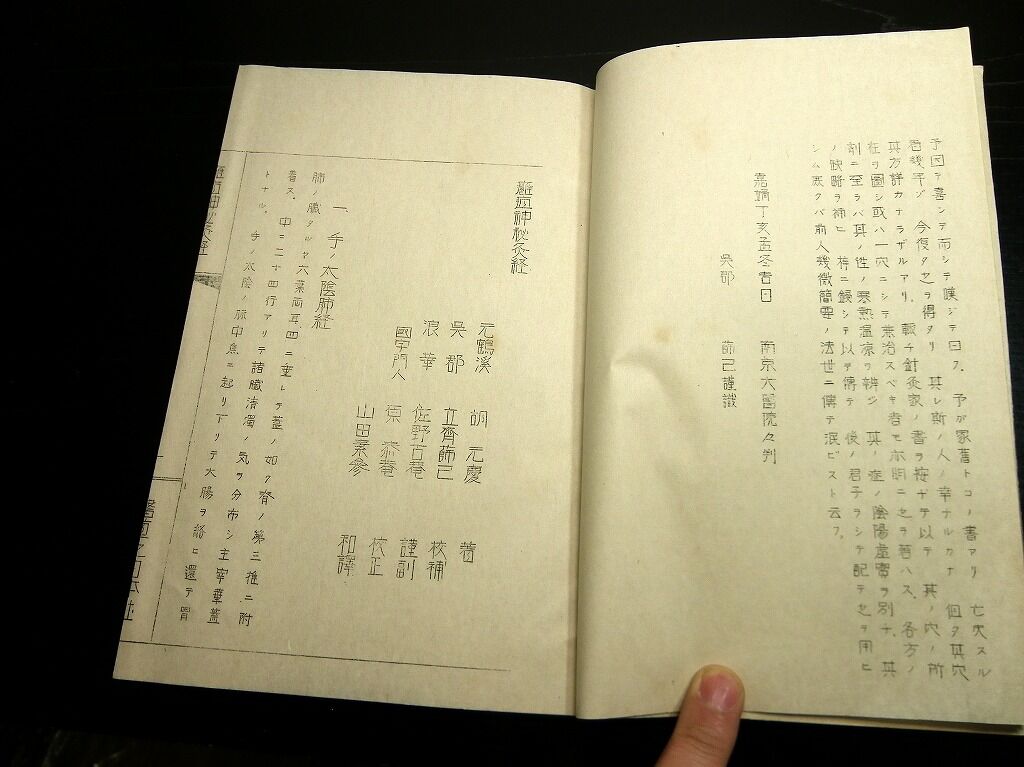 予因テ喜シテ而シテ嘆ジテ曰ク、予が家舊トコノ書アリ 亡失スル
 今復タ之ヲ得タリ 其レ斯ノ人ノ幸ナルカナ 但タ其穴
其方詳カナラザルアリ、輙チ針灸家ノ書ヲ按ジテ以テ 其ノ穴ノ所
在ヲ圖シ或ハ一穴ニシテ兼治スベキ者モ亦明ニ之ヲ著ハス、各方ノ
劑ニ至ラバ其ノ性ノ寒熱温凉ヲ辨シ 其ノ症ノ陰陽虚實ヲ別チ、其
ノ缺略ヲ補ヒ 梓ニ鋟シテ以テ傳テ 後ノ君子ヲシテ記テ之ヲ用ヒ
シム 庶クバ前人幾微簡要ノ法世ニ傳テ泯ビスト云フ、
嘉靖丁亥孟冬吉日 南京太醫院々判
呉郡 薛己謹識
難疽神秘灸経
元鶴溪 胡元慶 著
呉郡 立齊薛己 校補
浪華 佐野古菴 謹副
國字門人 原泰菴 校正
山田業參 和譯
一、手ノ太陰肺経
肺ノ臓タルヤ六葉両耳四ニ垂レテ蓋ノ如ク脊ノ第三推ニ附
着ス、中ニ二十四行アリテ諸臓清濁ノ気ヲ分布シ主宰華蓋
トナル、手ノ太陰ノ脉中焦ニ起リ下リテ大腸ヲ絡ヒ還テ胃